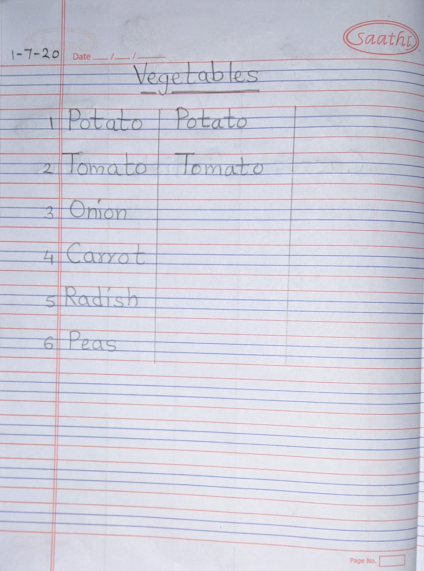 Saathi
1-7-20 Date __/__/____
Vegetables
1 Potato Potato
2 Tomato Tomato
3 Onion
4 Carrot
5 Radish
6 Peas
Page No.